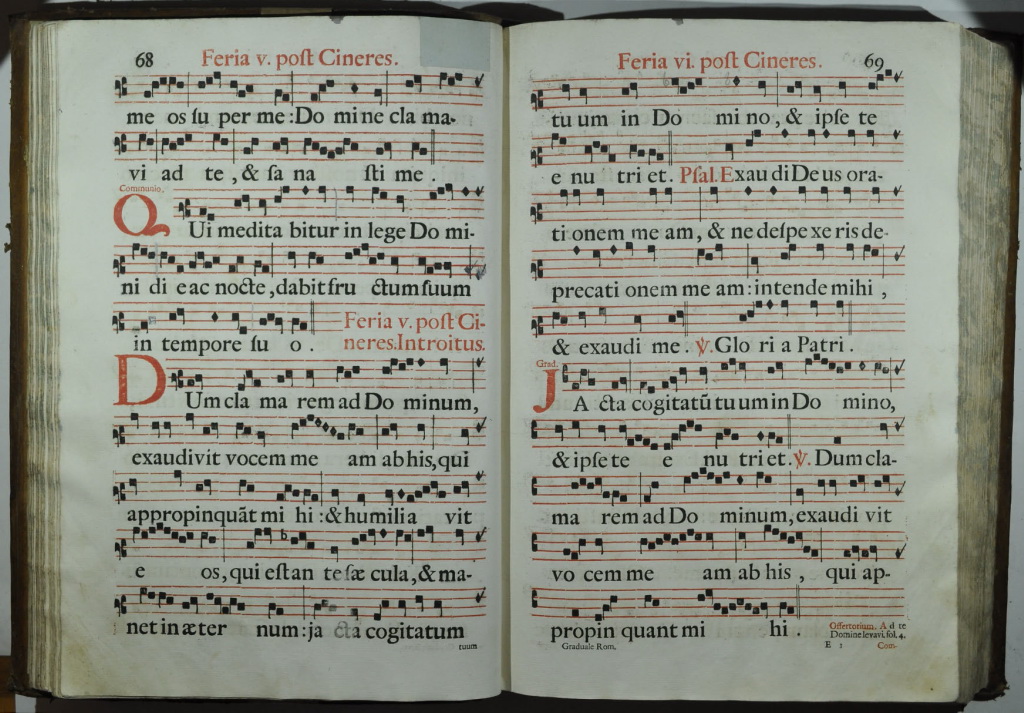 68 Feria v. post Cineres.
me os su per me: Do mi ne cla ma-
vi ad te, & sa na sti me.
Communio.
QUi medita bitur in lege Do mi-
ni di e ac nocte, dabit fru ctum suum
in tempore su o. Feria v. post Ci-
neres. Introitus.
DUm cla ma rem ad Do minum,
exaudivit vocem me am ab his, qui
appropinquãt mi hi: & humilia vit
e os, qui est an te sæ cula, & ma-
net in æter num: ja cta cogitatum
tuum
Feria vi. post Cineres. 69
tu um in Do mi no, & ipse te
e nu tri et. Psal. Exau di De us ora-
ti onem me am, & ne despe xe ris de-
precati onem me am: intende mihi,
& exaudi me. ℣. Glo ri a Patri.
Grad.
JA cta cogitatũ tu um in Do mino,
& ipse te e nu tri et. ℣. Dum cla-
ma rem ad Do minum, exaudi vit
vo cem me am ab his, qui ap-
propin quant mi hi.
Offertorium. Ad te
Domine levavi. fol. 4.
Graduale Rom. E 1 Com-